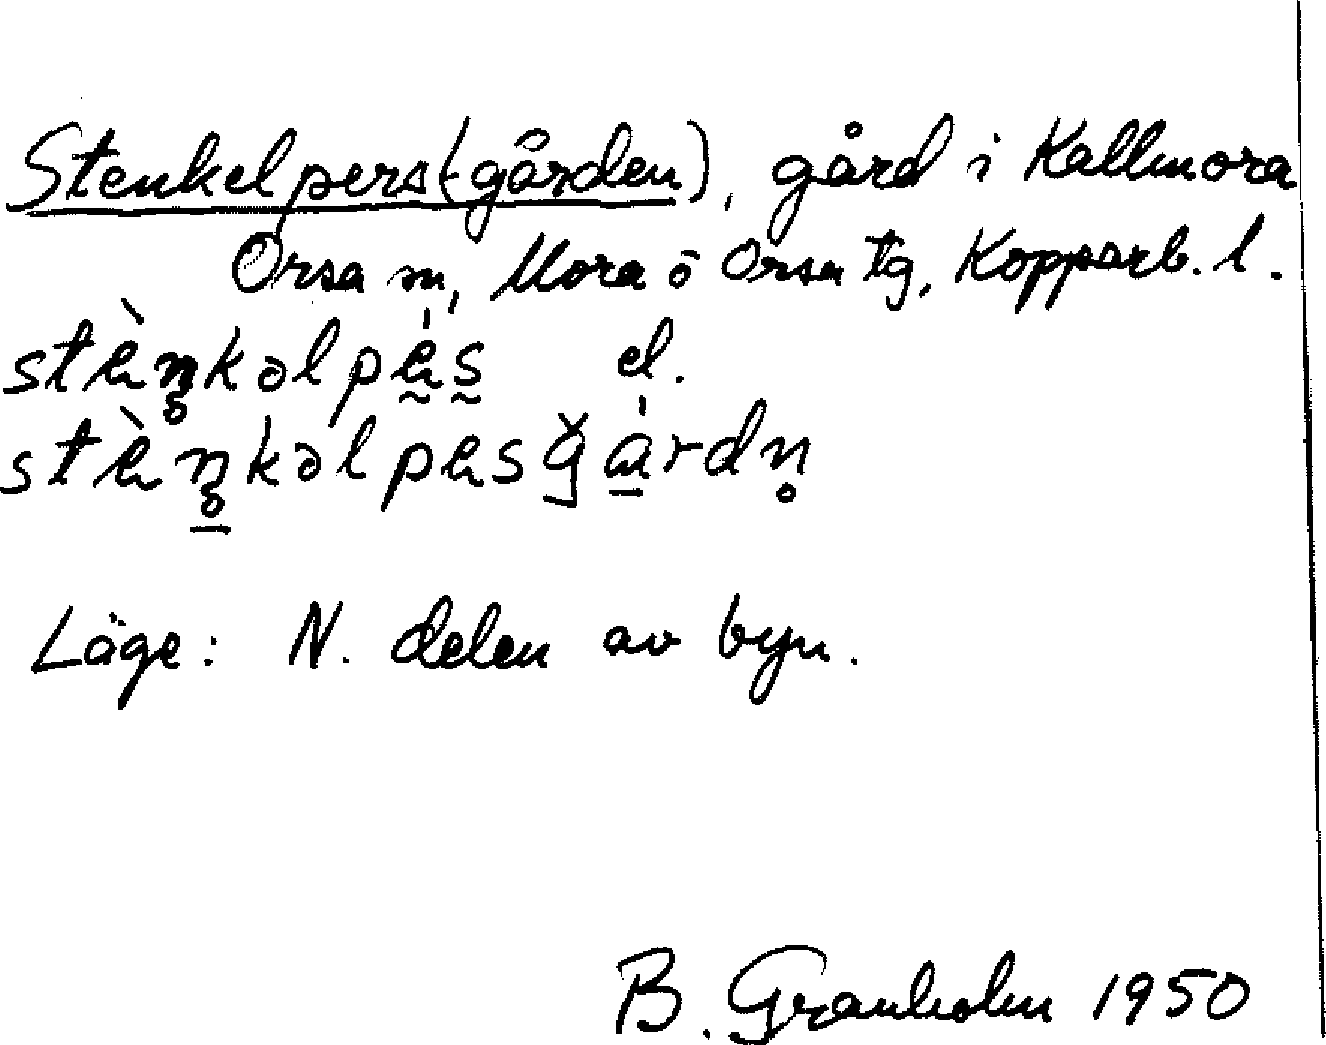 Stenkelpers(-gården), gård i Kallmora
Orsa sn, Mora o Orsa tg, Kopparb. l.
stèn̥kəlpés el.
stèn̥kəlpesgárdn̥
Läge: N. delen av byn.
B. Granholm 1950